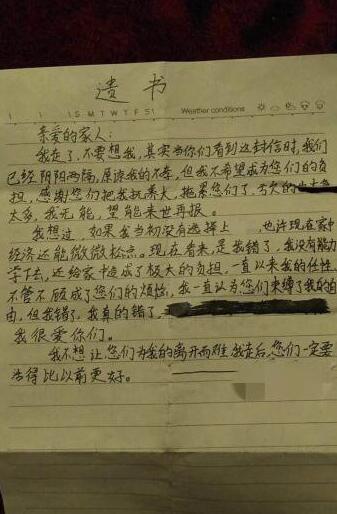 遗书
I S M T W T F S Weather conditions
亲爱的家人：
我走了，不要想我，其实当你们看到这封信时，我们
已经阴阳两隔，原谅我的不孝，但我不希望成为您们的负
担，感谢您们把我抚养大，拖累您们了，亏欠的
太多，我无能，望能来世再报。
我想过 如果我当初没有选择上 也许现在家中
经济还能微微松点。现在看来，是我错了，我没有能力
学下去，还给家中造成了极大的负担，一直以来我的任性，
不管不顾成了您们的烦恼，我一直认为您们束缚了我的自
由，但我错了，我真的错了，
我很爱你们。
我不想让您们为我的离开而难 我走后，您们一定要
活得比以前更好。